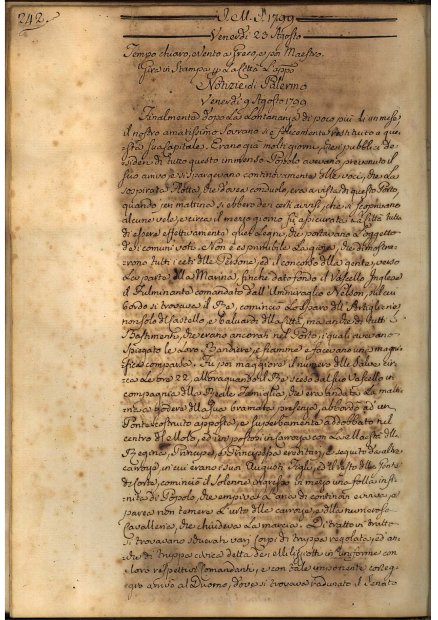 242.
J. M. J. 1799
Venerdì 23 Agosto
Tempo chiaro, e Vento a Greco, e poi Maestro.
Gira in Stampa p. la Città l'app.o
Notizie di Palermo
Venerdì 9 Agosto 1799
Finalmente dopo la lontananza di poco più di un mese
il nostro amatissimo Sovrano si è felicemente restituito a que
sta sua Capitale. Erano già molti giorni, che i pubblici de
siderj di tutto questo immenso Popolo avevano prevenuto il
suo arrivo e si spargevano continovamente delle voci, che la
sospirata Flotta, che dovea condurlo, era a vista di questo Porto,
quando jeri mattina si ebbero de' certi avvisi, che si scoprivano
alcune vele, e circa il mezzo giorno fu assicurata la Città tutta
di essere effettivamente quei Legni, che portavano l'oggetto
de' comuni voti. Non è esprimibile la gioja, che dimostra
rono tutti i ceti delle Persone, ed il concorso della gente, verso
la parte della Marina, finchè dato fondo il Vascello Inglese
il Fulminante comandato dall'Ammiraglio Nelson, sul cui
bordo si trovava il Re, cominciò lo sparo dell'Artiglierie
non solo di Castello, e Baluardi della Città, ma anche di tutti i
Bastimenti, che erano ancorati nel Porto, i quali avevano
spiegate le loro Bandiere, e fiamme e facevano una magni
fica comparsa. Fu poi maggiore il numero delle Salve circa
le ore 22, allora quando il Re scese dal suo Vascello in
compagnia della Reale Famiglia, che era andata la matti
na a godere della sua bramata presenza, a bordo ad un
Ponte costruito apposta, e superbamente addobbato nel
centro del Molo, ed ivi postosi in Carrozza con la Maestà della
Regina, Principe, e Principessa ereditarj, e seguito da altre
carrozze in cui erano i suoi Augusti Figli, ed il resto della Gente
di Corte, cominciò il solenne ingresso in mezzo una folla infi
nita di Popolo, che empiva l'aria di continovi evviva, e
parea non temere l'urto delle carrozze, e della numerosa
Cavalleria, che chiudeva la marcia. Di tratto in tratto
si trovavano schierati varj Corpi di truppa regolata, ed an
che di truppa civica detta dei Miliziotti in uniforme con
i loro respettivi Comandanti, e con tale imponente corteg
gio arrivò al Duomo, dove si trovava radunato il Senato